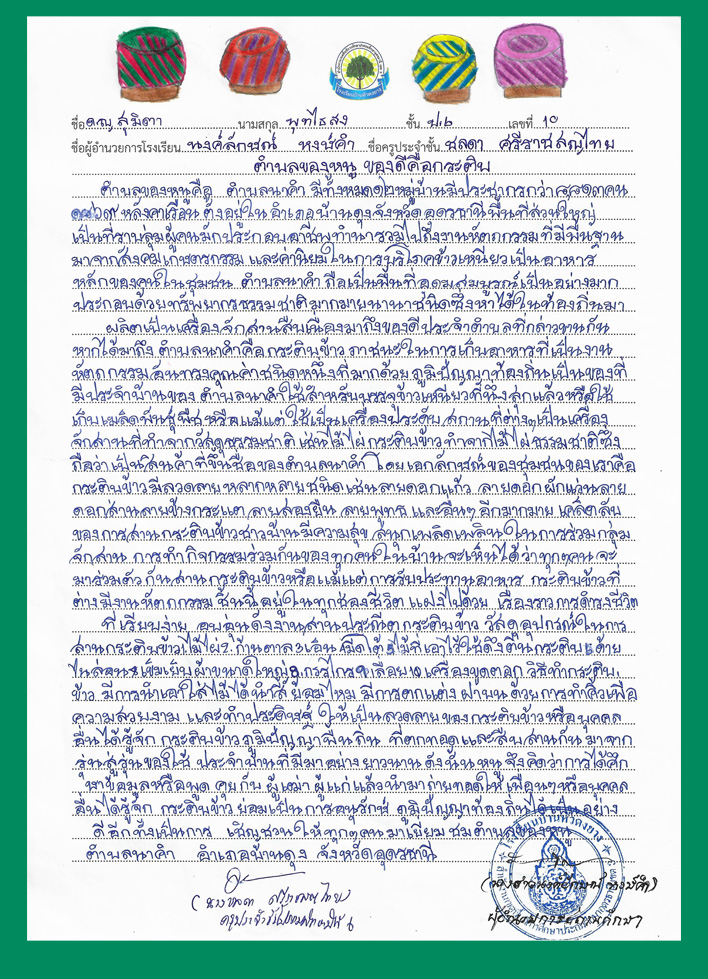 ชื่อ ดญ สุมิตา นามสกุล พุทไธสง ชั้น ป.๖ เลขที่ 10
ชื่อผู้อำนวยการโรงเรียน นงค์ลักษณ์ หงษ์คำ ชื่อครูประจำชั้น ชลดา ศรีราชสญไทย
ตำบลของหนู ของดีคือกระติบ
ตำบลของหนูคือ ตำบลนาคำ มีทั้งหมด๑๒หมู่บ้านมีประชากรกว่า คน
หลังคาเรือน ตั้งอยู่ใน อำเภอบ้านดุงจังหวัดอุดรธานีพื้นที่ส่วนใหญ่
เป็นที่ราบลุ่มผู้คนมักประกอบอาชีพทำนารวมไปถึงงานหัตถกรรมที่มีพื้นฐาน
มาจากสังคมเกษตรกรรม และค่านิยมในการบริโภคข้าวเหนียวเป็นอาหาร
หลักของคนในชุมชน ตำบลนาคำ ถือเป็นพื้นที่อุดมสมบูรณ์เป็นอย่างมาก
ประกอบด้วยทรัพยากรธรรมชาติมากมายนานาชนิดซึ่งหาได้ในท้องถิ่นมา
ผลิตเป็นเครื่องจักสานสืบเนื่องมาถึงของดีประจำตำบลที่กล่าวขานกัน
หากได้มาถึง ตำบลนาคำคือกระติบข้าว ภาชนะในการเก็บอาหารที่เป็นงาน
หัตถกรรมอันทรงคุณค่าชนิดหนึ่งที่มากด้วยภูมิปัญญาท้องถิ่นเป็นของที่
มีประจำบ้านของ ตำบลนาคำใช้สำหรับบรรจุข้าวเหนียวที่นึ่งสุกแล้วหรือใช้
เก็บเมล็ดพันธุ์พืช หรือแม้แต่ ใช้เป็นเครื่องประดับ สถานที่ต่างๆเป็นเครื่อง
จักสานที่ทำจากวัสดุธรรมชาติ เช่นไม้ไผ่ กระติบข้าวทำจากไม้ไผ่ธรรมชาติซึ่ง
ถือว่าเป็นสินค้าที่ขึ้นชื่อของตำบลนาคำ โดยเอกลักษณ์ของชุมชนของเราคือ
กระติบข้าวมีลวดลายหลากหลายชนิด เช่นลายดอกแก้ว ลายดอกผักแว่นลาย
ดอกส้านลายข้างกระแต ลายสองยืน ลายพุทธ และอื่นๆ อีกมากมาย เคล็ดลับ
ของการสานกระติบข้าวชาวบ้านมีความสุข สนุกเพลิดเพลินในการร่วมกลุ่ม
จักสาน การทำกิจกรรมร่วมกันของทุกคนในบ้าน จะเห็นได้ว่าทุกๆคน จะ
มารวมตัวกันสานกระติบข้าวหรือแม้แต่การรับประทานอาหาร กระติบข้าวที่
ต่างมีงานหัตถกรรม ชิ้นนี้อยู่ในทุกช่วงชีวิต แฝงไปด้วย เรื่องราวการดำรงชีวิต
ที่เรียบง่าย อบอุ่นดั่งงานสานประณีต กระติบข้าว วัสดุอุปกรณ์ในการ
สานกระติบข้าวไม้ไผ่ ก้านตาล เอ็น ด้าย
ไนล่อน เข็มเย็บผ้าขนาดใหญ่ กรรไกร เลื่อย เครื่องขูดตอก วิธีทำกระติบ
ข้าว มีการนำเอา ย้อมไหม มีการตกแต่ง ด้วยการทำคิ้วเพื่อ
ความสวยงาม และทำประดิษฐ์ ให้เป็นลวดลายของกระติบข้าวหรือบุคคล
อื่นได้รู้จัก กระติบข้าวภูมิปัญญาพื้นถิ่น ที่ตกทอดและสืบสานกัน มาจาก
รุ่นสู่รุ่นของใช้ ประจำบ้านที่มีมาอย่างยาวนาน ดังนั้นหนู จึงคิดว่าการได้ศึก
ษาข้อมูลหรือพูด คุยกับ ผู้เฒ่า ผู้แก่แล้วนำมาถ่ายทอดให้ เพื่อนๆหรือบุคคล
อื่นได้รู้จัก กระติบข้าว ย่อมเป็นการอนุรักษ์ ภูมิปัญญาท้องถิ่นได้เป็นอย่าง
ดีอีกทั้งเป็นการ เชิญชวนให้ทุกๆคนมาเยี่ยม ชมตำบลของหนู
ตำบลนาคำ อำเภอบ้านดุง จังหวัดอุดรธานี